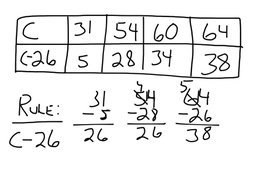 C 31 54 60 64
C-26 5 28 34 38
RULE: 31 54 64
-5 -28 -26
C-26 26 26 38